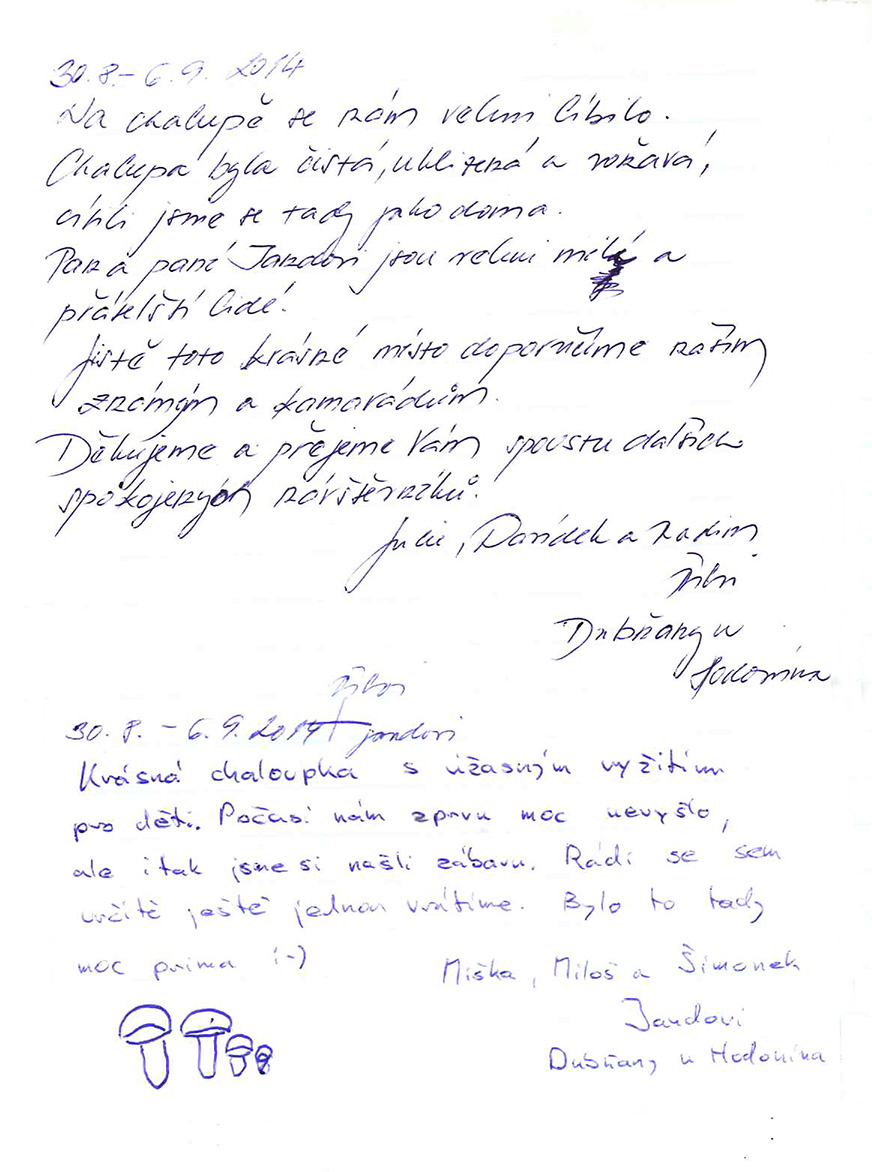 30.8.– 6.9. 2014
Na chalupě se nám velmi líbilo.
Chalupa byla čistá, uklizená a voňavá,
cítili jsme se tady jako doma.
Pan a paní Jandovi jsou velmi milí a
přátelští lidé.
Jistě toto krásné místo doporučíme našim
známým a kamarádům.
Děkujeme a přejeme Vám spoustu dalších
spokojených návštěvníků.
Julie, Davídek a Radim
Dubňany u
Hodonína
30.8. – 6.9. 2014 Jandovi
Krásná chaloupka s úžasným vyžitím
pro děti. Počasí nám zprvu moc nevyšlo,
ale i tak jsme si našli zábavu. Rádi se sem
určitě ještě jednou vrátíme. Bylo to tady
moc prima :-)
Miška, Miloš a Šimonek
Jandovi
Dubňany u Hodonína